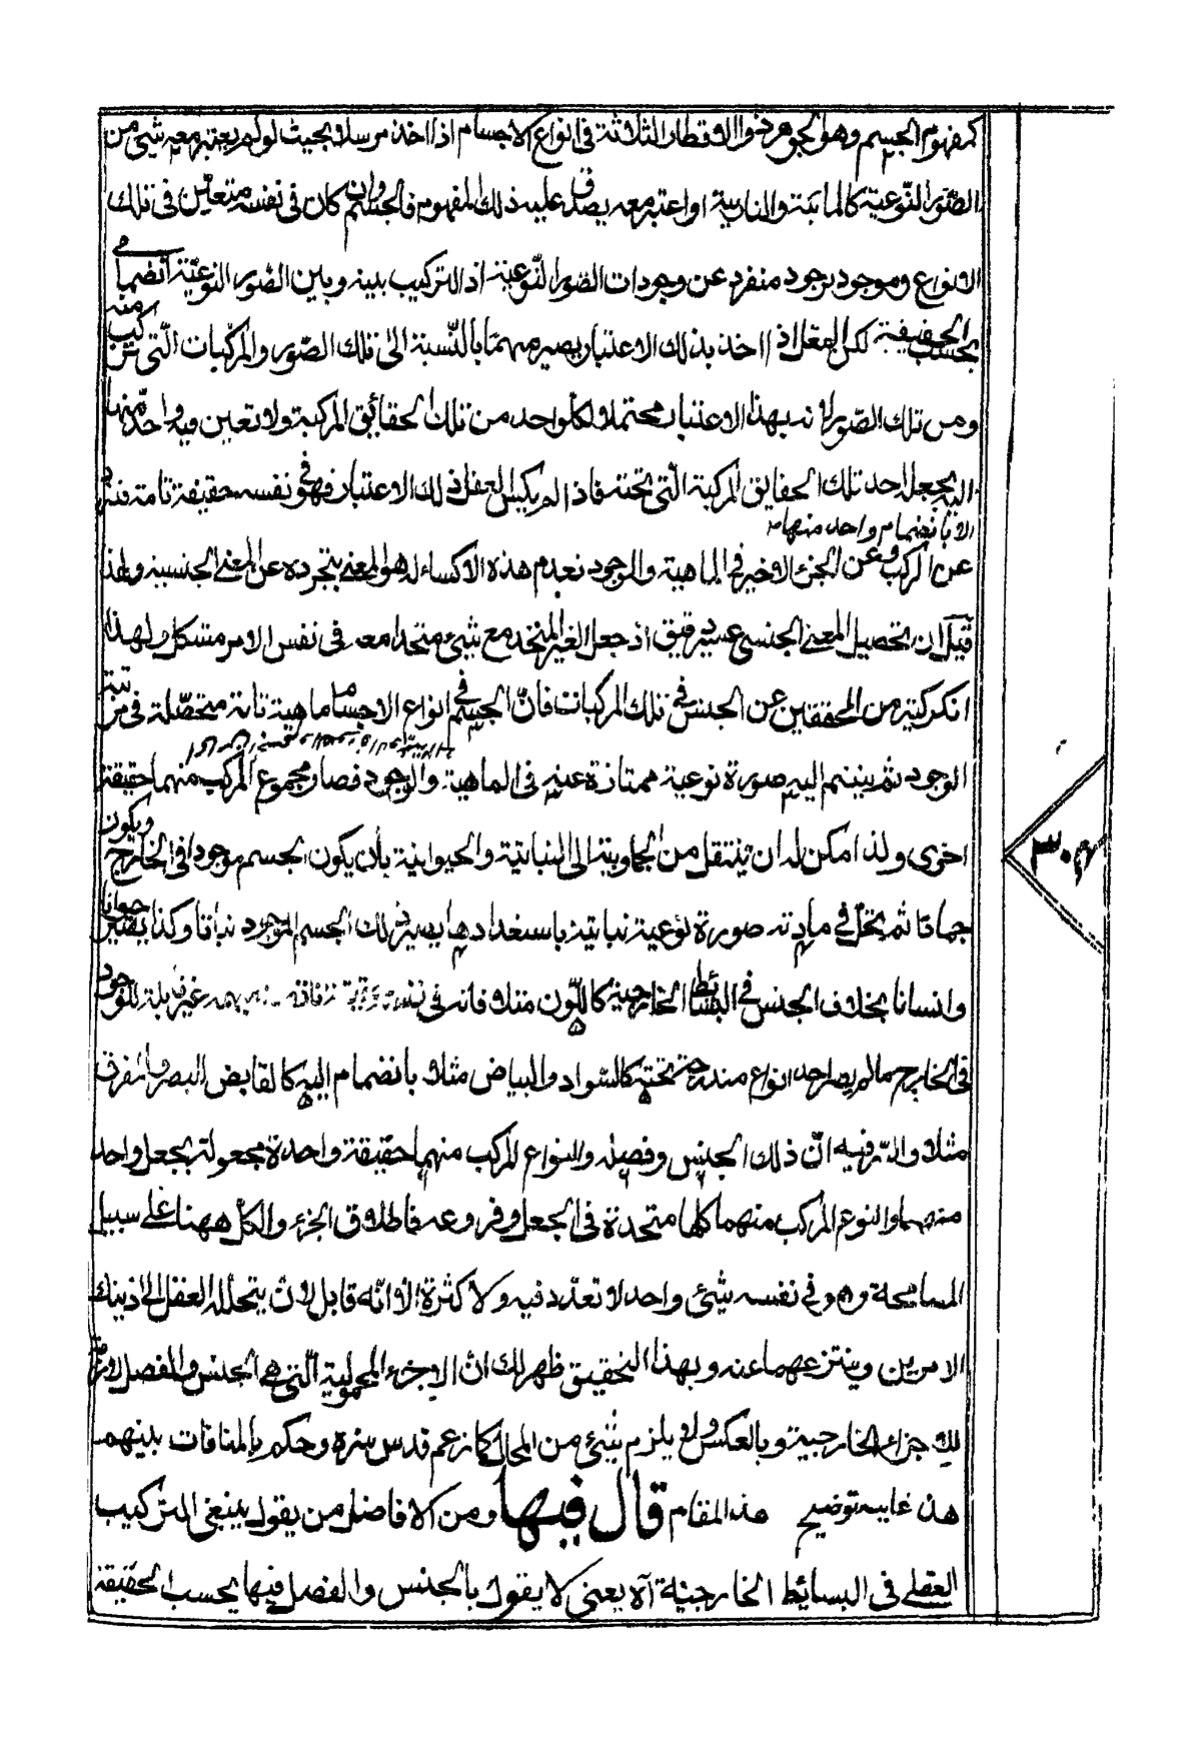 كمفهوم الجسم وهو الجوهر ذو الاقطار الثلاثة في انواع الاجسام اذا اخذ مرسلا بحيث لو لم يعتبر معه شيئ من
الصّور النّوعية كالمائية والنارية او اعتبر معه يصدق عليه ذلك المفهوم فالجسم وان كان في نفسه متعيّن في تلك
الانواع وموجود بوجود منفرد عن وجودات الصّور النّوعية اذ التركيب بينه وبين الصّور النّوعيّة انضمامي
بحسب الحقيقة لكن العقل اذا اخذ بذلك الاعتبار يصير مبهمًا بالنّسبة الى تلك الصّور والمركبات الّتي تركب منه
ومن تلك الصّور لانه بهذا الاعتبار محتملا لكل واحد من تلك الحقائق المركبة ولا تعين فيه واحد منها
اليه يجعل احد تلك الحقايق المركبة الّتي تحته فاذا لم يكيس العقل ذلك الاعتبار فهو في نفسه حقيقة تامة
الا بانضمام واحد منها
عن المركب وعن الجزء الاخير في الماهية والوجود نعدم هذه الاكساء له هو المعنى بتجرده عن المعنى الجنسية ولهذا
قيل ان تحصيل المعنى الجنسي عسير دقيق اذ جعل الغير المتحد مع شيئ متحدا معه في نفس الامر مشكل ولهذا
انكر كثير من المحققين عن الجنس في تلك المركبات فانّ الجسم في انواع الاجسام ماهية تامة متحصّلة في مرتبة
الوجود ثم ينضم اليه صورة نوعية ممتازة عنه في الماهية والوجود فصار مجموع المركب منهما حقيقة
اخرى ولذا امكن له ان ينتقل من الجمادية الى النباتية والحيوانية بان يكون الجسم موجودا في الخارج ويكون
جمادا ثم يحل في مادته صورة نوعية نباتية باستعدادها يصير ذلك الجسم الموجود نباتا وكذا يصير حيوانا
وانسانا بخلاف الجنس في البسائط الخارجية كاللّون مثلا فانه في نفسه غير قابلة للوجود
في الخارج ما لم يصر احد انواع مندرجة تحته كالسّواد والبياض مثلا بانضمام اليه كالقابض البصر والمفرق
مثلا والسّر فيه انّ ذلك الجنس وفصيله والنواع المركب منهما حقيقة واحدة مجعولة بجعل واحد
منهما والنوع المركب منهما كلها متحدة في الجعل وفروعه فاطلاق الجزء والكلّ ههنا على سبيل
المسامحة وهو في نفسه شيئ واحد لا تعدّد فيه ولا كثرة الا انّه قابل لان يتحلل العقل الى ذينك
الامرين وينتزعهما عنه وبهذا التحقيق ظهر لك انّ الاجزاء المحمولية الّتي هي الجنس والفصل لازمة
للاجزاء الخارجية وبالعكس ولا يلزم شيئ من المحال كما زعم قدس سره وحكم بالمنافات بينهم
هذا غاية توضيح هذا المقام قال فيها ومن الافاضل من يقول بنفي التركيب
العقلي في البسائط الخارجية آه يعني لا يقول بالجنس والفصل فيها بحسب الحقيقة